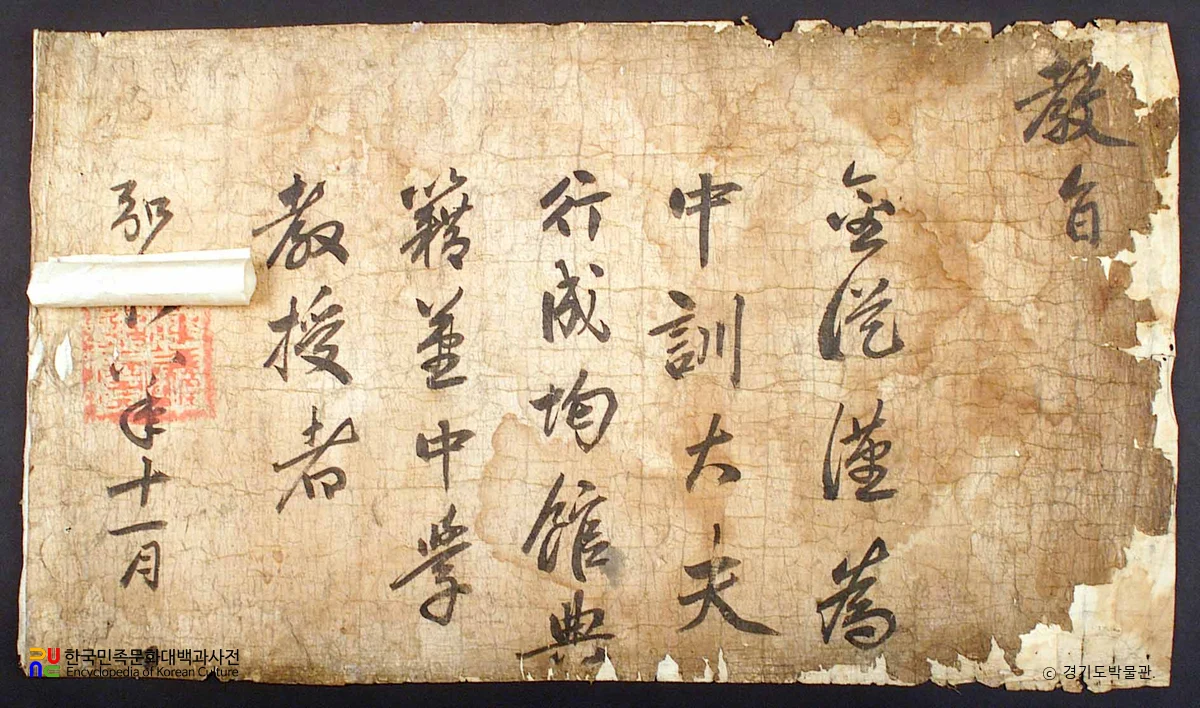 教旨
金從漢為
中訓大夫
行成均館典
籍兼中學
教授者
弘 年十一月
한국민족문화대백과사전
Encyclopedia of Korean Culture
© 경기도박물관